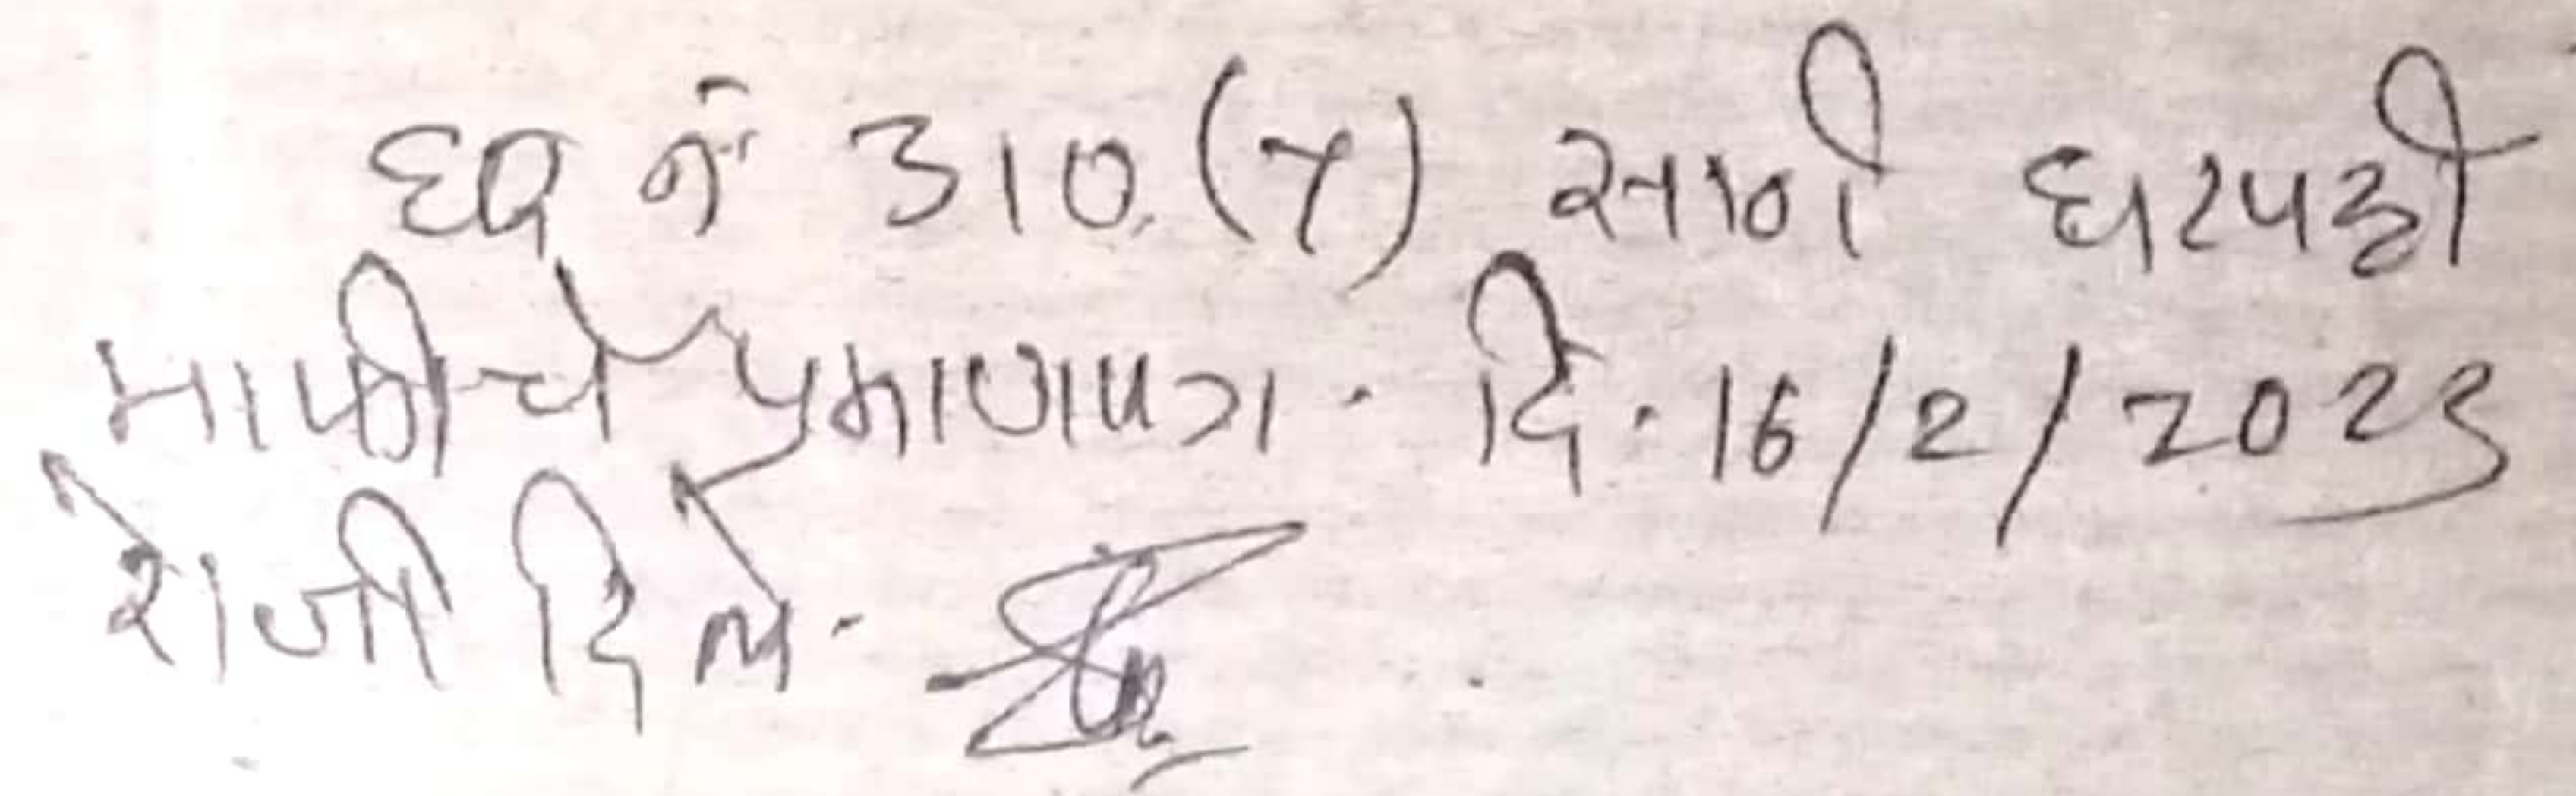 घर नं 310 (4) साठी घरपट्टी
माफीचे प्रमाणपत्र. दि. 16/2/2023
रोजी दिले.